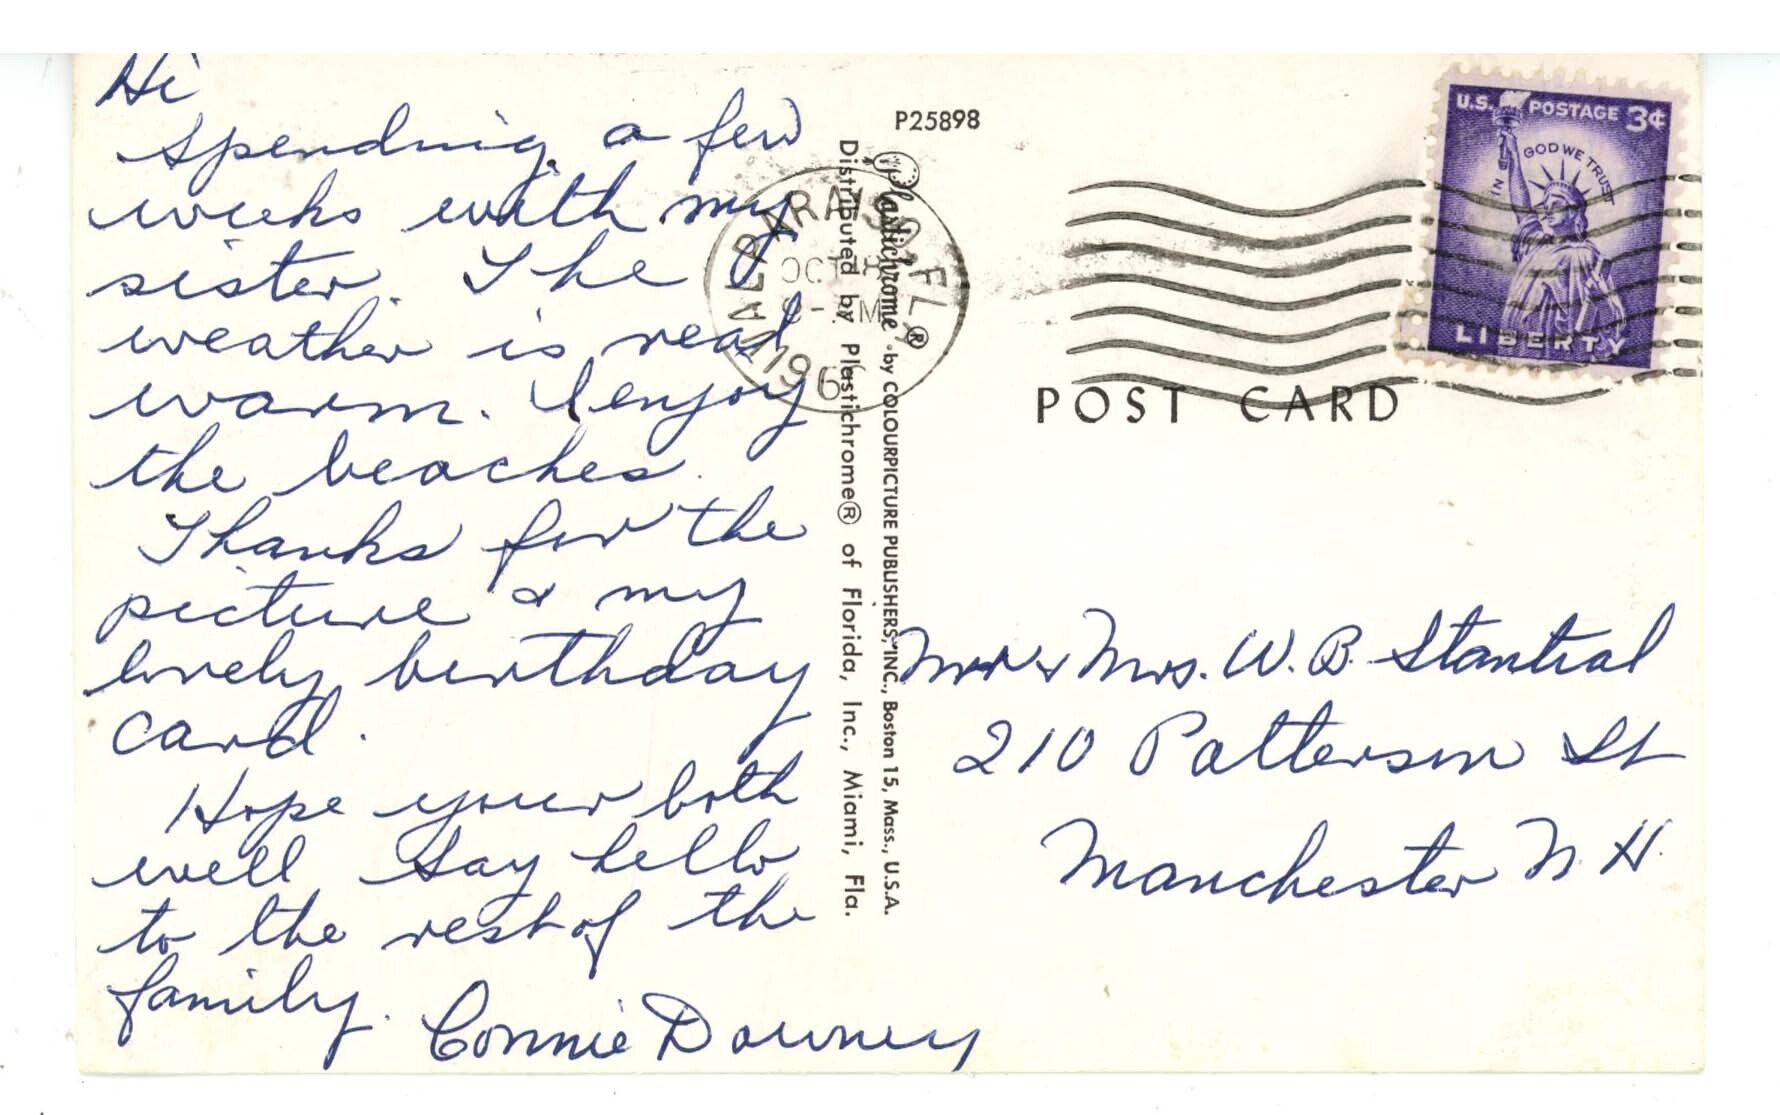 Hi
Spending a few
weeks with my
sister. The
weather is real
warm. I enjoy
the beaches.
Thanks for the
picture & my
lovely birthday
card.
Hope your both
well Say hello
to the rest of the
family.
Connie Downey
P25898
Plastichrome® by COLOURPICTURE PUBLISHERS, INC., Boston 15, Mass., U.S.A.
Distributed by Plastichrome® of Florida, Inc., Miami, Fla.
OCT
196
FLA
U.S. POSTAGE 3¢
IN GOD WE TRUST
LIBERTY
POST CARD
Mr & Mrs. W. B. Stantial
210 Patterson St
Manchester N. H.